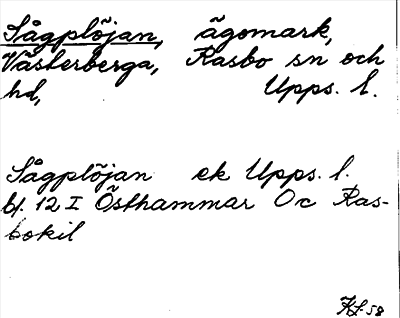 Sågplöjan, ägomark,
Västerberga, Rasbo sn och
hd, Upps. l.
Sågplöjan ek Upps. l.
bl. 12 I Östhammar Oc Ras-
bokil
KL. 58